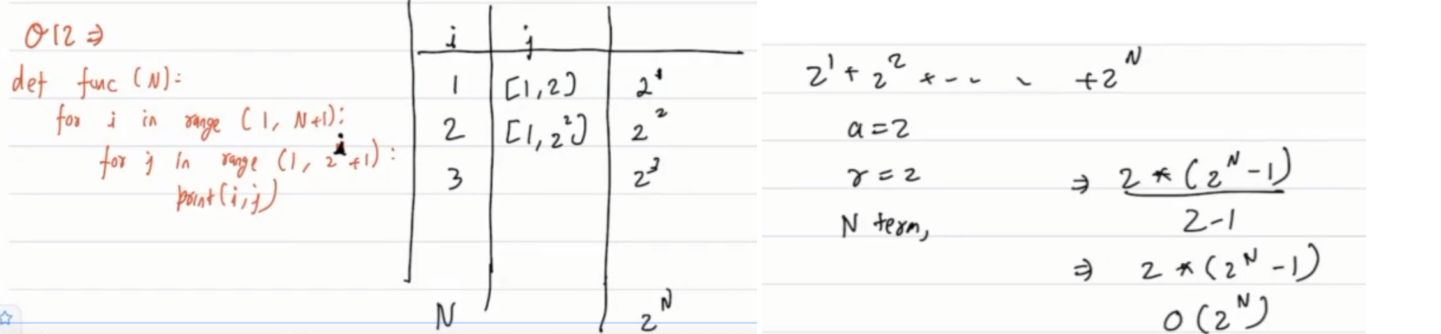 Q12 ⇒
def func (N):
for i in range (1, N+1):
for j in range (1, 2^i+1):
print(i,j)
i j
1 [1,2] 2^1
2 [1,2^2] 2^2
3 2^3
N 2^N
2^1 + 2^2 + -- - - +2^N
a=2
r=2
N term,
⇒ 2 * (2^N -1)
2-1
⇒ 2 * (2^N -1)
O(2^N)